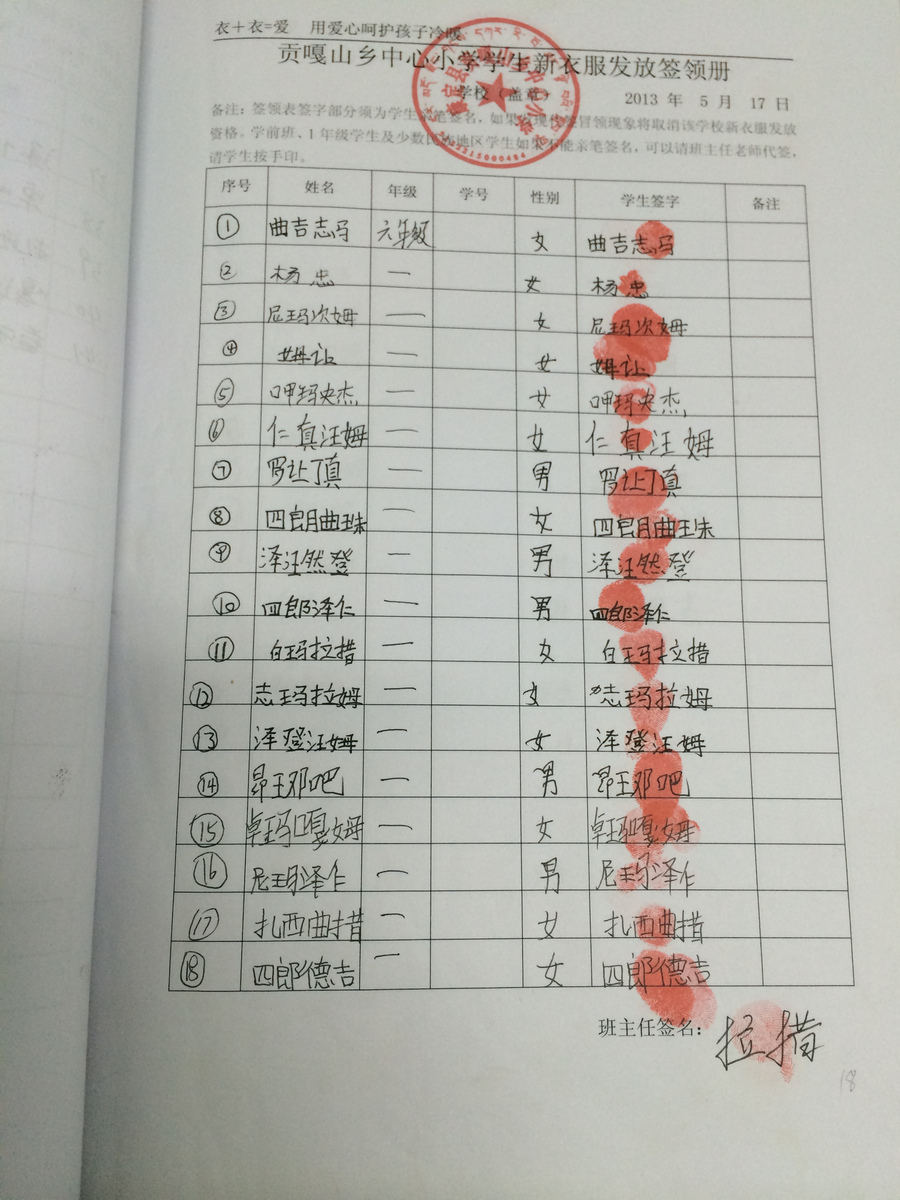 衣+衣=爱 用爱心呵护孩子冷暖
贡嘎山乡中心小学学生新衣服发放签领册
学校（盖章） 2013 年 5 月 17 日
备注：签领表签字部分须为学生亲笔签名，如果发现代签冒领现象将取消该学校新衣服发放
资格。学前班、1年级学生及少数民族地区学生如果不能亲笔签名，可以请班主任老师代签，
请学生按手印。
序号 姓名 年级 学号 性别 学生签字 备注
① 曲吉志玛 六年级 女 曲吉志玛
② 杨忠 — 女 杨忠
③ 尼玛次姆 — 女 尼玛次姆
④ 姆让 — 女 姆让
⑤ 呷玛央杰 — 女 呷玛央杰
⑥ 仁真汪姆 — 女 仁真汪姆
⑦ 罗让丁真 — 男 罗让丁真
⑧ 四郎曲珠 — 女 四郎曲珠
⑨ 泽汪然登 — 男 泽汪然登
⑩ 四郎泽仁 — 男 四郎泽仁
⑪ 白玛拉措 — 女 白玛拉措
⑫ 志玛拉姆 — 女 志玛拉姆
⑬ 泽登汪姆 — 女 泽登汪姆
⑭ 昂王邓吧 — 男 昂王邓吧
⑮ 卓玛嘎姆 — 女 卓玛嘎姆
⑯ 尼玛泽仁 — 男 尼玛泽仁
⑰ 扎西曲措 — 女 扎西曲措
⑱ 四郎德吉 — 女 四郎德吉
班主任签名： 拉措
18